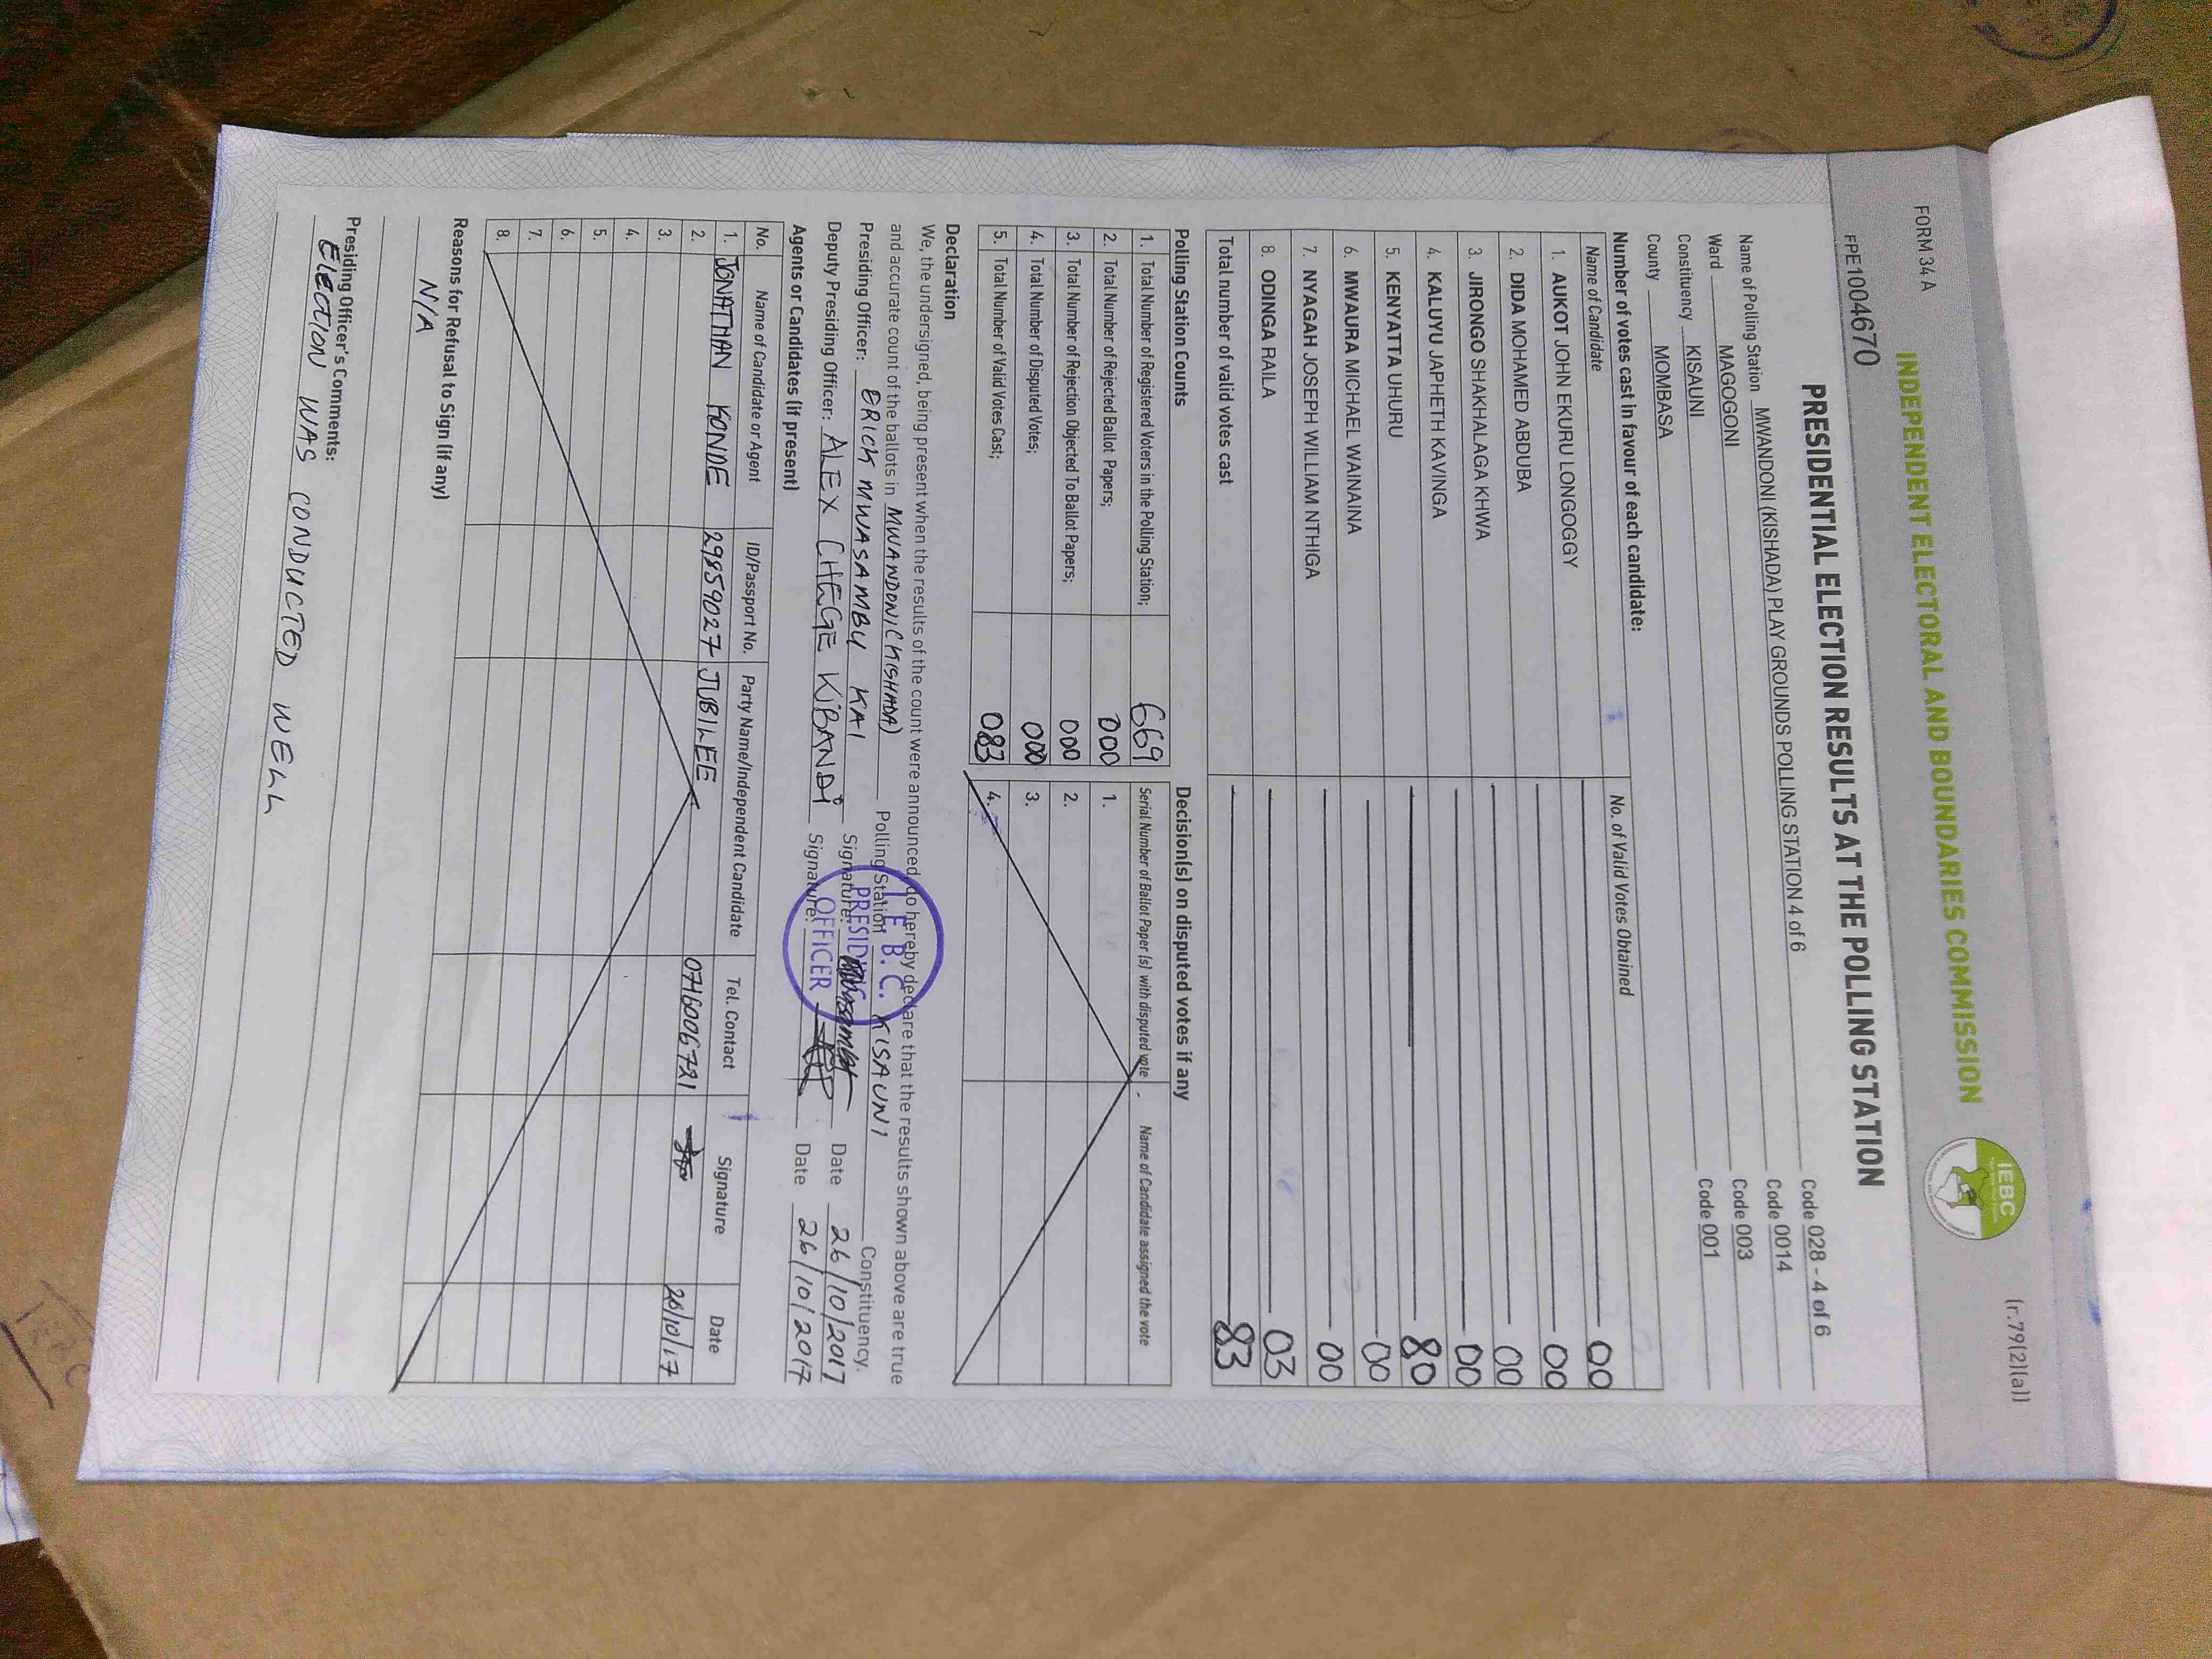 FORM 34A
(r.79(2)(a))
INDEPENDENT ELECTORAL AND BOUNDARIES COMMISSION
IEBC
FPE1004670
PRESIDENTIAL ELECTION RESULTS AT THE POLLING STATION
Name of Polling Station MWANDONI (KISHADA) PLAY GROUNDS POLLING STATION 4 of 6 Code 028 - 4 of 6
Ward MAGOGONI Code 0014
Constituency KISAUNI Code 003
County MOMBASA Code 001
Number of votes cast in favour of each candidate:
Name of Candidate No. of Valid Votes Obtained
1. AUKOT JOHN EKURU LONGOGGY 00
2. DIDA MOHAMED ABDUBA 00
3. JIRONGO SHAKHALAGA KHWA 00
4. KALUYU JAPHETH KAVINGA 00
5. KENYATTA UHURU 80
6. MWAURA MICHAEL WAINAINA 00
7. NYAGAH JOSEPH WILLIAM NTHIGA 00
8. ODINGA RAILA 03
Total number of valid votes cast 83
Polling Station Counts
1. Total Number of Registered Voters in the Polling Station; 669
2. Total Number of Rejected Ballot Papers; 000
3. Total Number of Rejection Objected To Ballot Papers; 000
4. Total Number of Disputed Votes; 000
5. Total Number of Valid Votes Cast; 083
Decision(s) on disputed votes if any
Serial Number of Ballot Paper (s) with disputed vote Name of Candidate assigned the vote
1.
2.
3.
4.
Declaration
We, the undersigned, being present when the results of the count were announced, do hereby declare that the results shown above are true
and accurate count of the ballots in MWANDONI (KISHADA) Polling Station KISAUNI Constituency.
Presiding Officer: ERICK MWASAMBU KAI Signature: Date 26/10/2017
Deputy Presiding Officer: ALEX CHEGE KIBANDI Signature: Date 26/10/2017
I.E.B.C.
PRESIDING
OFFICER
Agents or Candidates (if present)
No. Name of Candidate or Agent ID/Passport No. Party Name/Independent Candidate Tel. Contact Signature Date
1. JONATHAN KONDE 29859027 JUBILEE 0716006721 26/10/17
2.
3.
4.
5.
6.
7.
8.
Reasons for Refusal to Sign (if any)
N/A
Presiding Officer's Comments:
ELECTION WAS CONDUCTED WELL